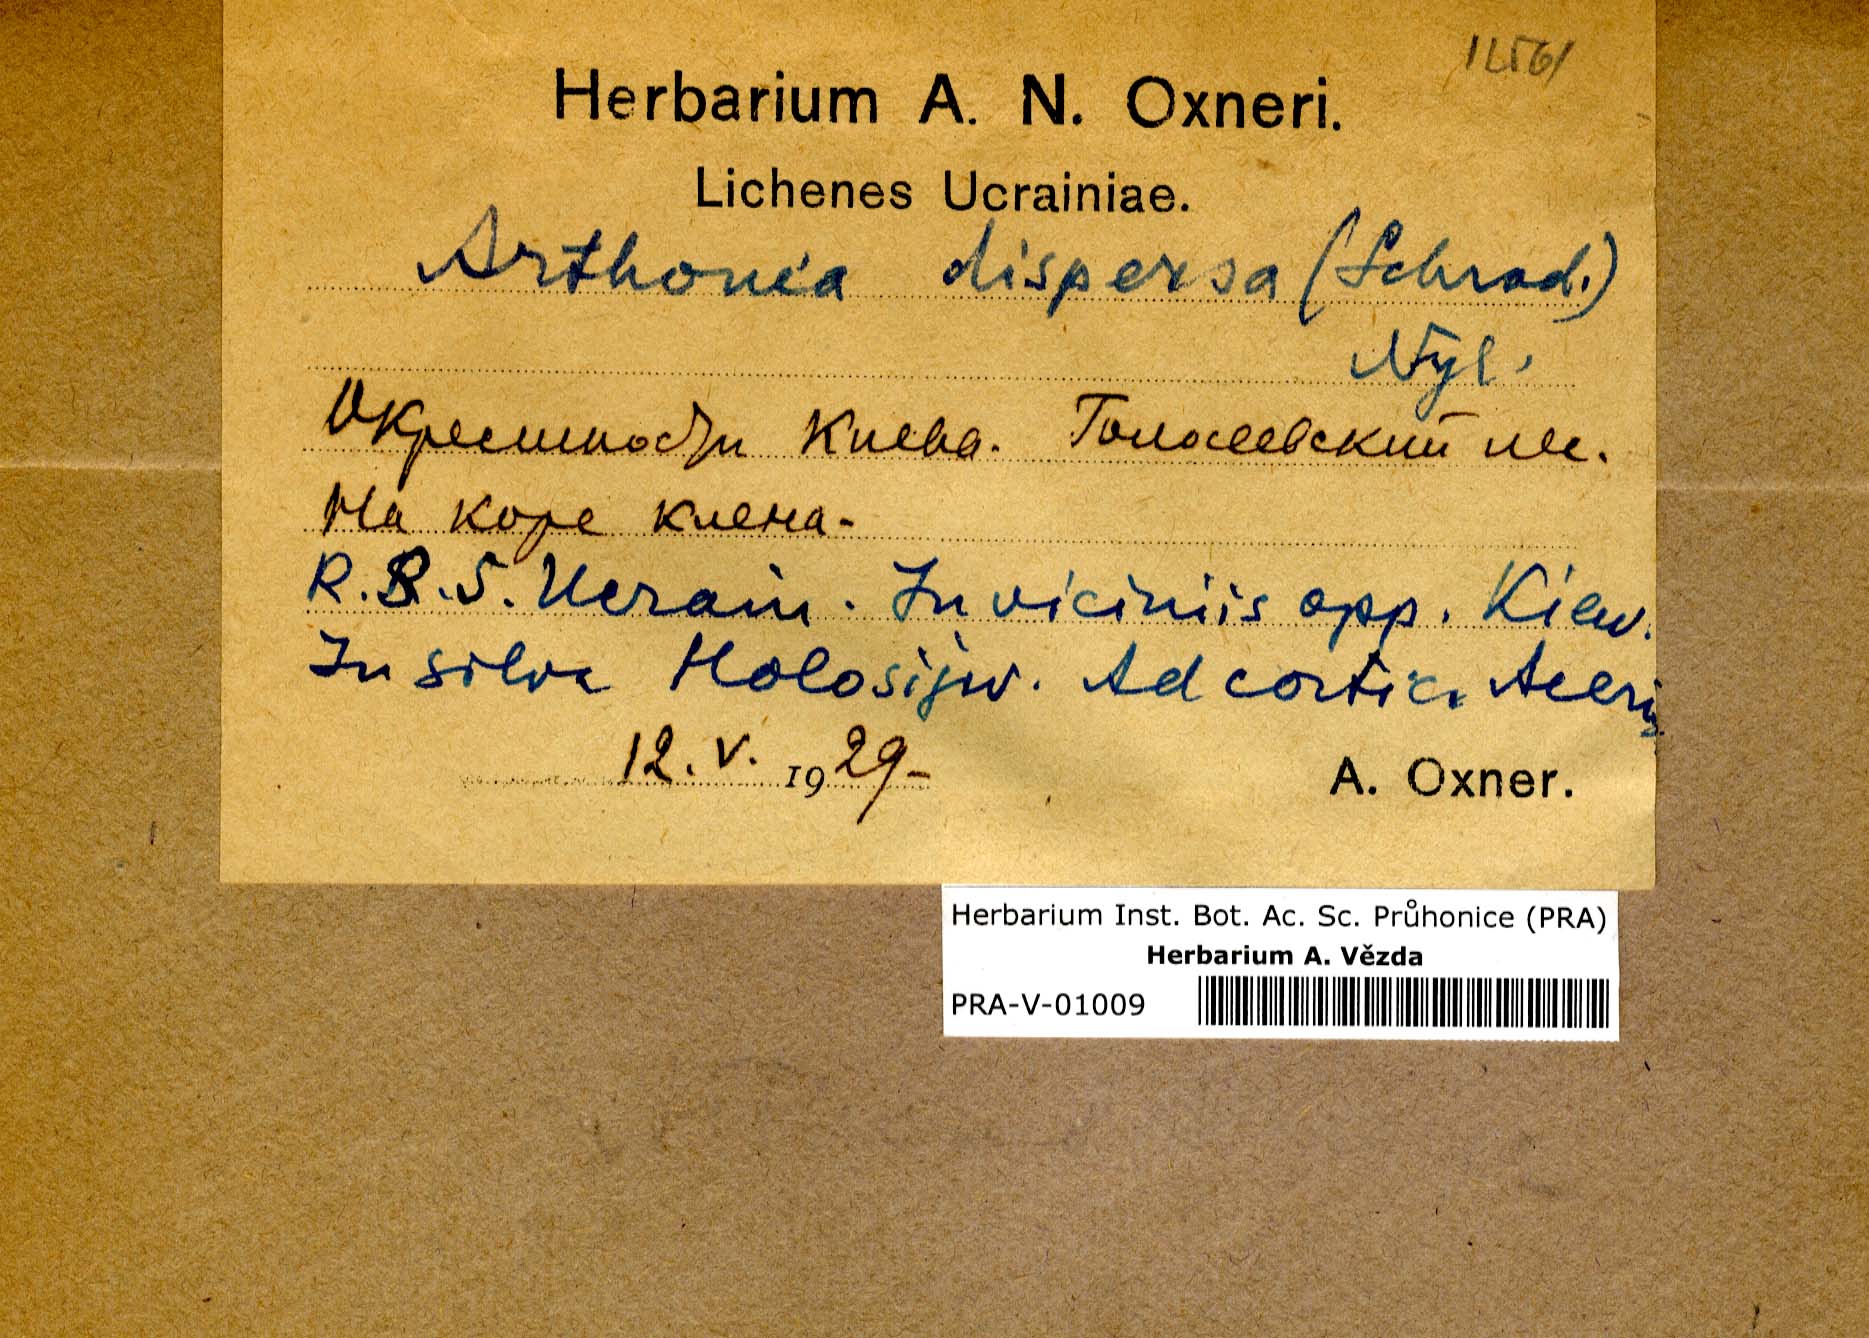 Herbarium A. N. Oxneri.
Lichenes Ucrainiae.
Arthonia dispersa (Schrad.)
Nyl.
Окрестности Киева. Голосеевский лес.
На коре клена.
R.S.S. Ucrain. In viciniis opp. Kiew.
In silva Holosijiw. Ad cortic. Aceris
12. V. 1929
A. Oxner.
Herbarium Inst. Bot. Ac. Sc. Průhonice (PRA)
Herbarium A. Vězda
PRA-V-01009